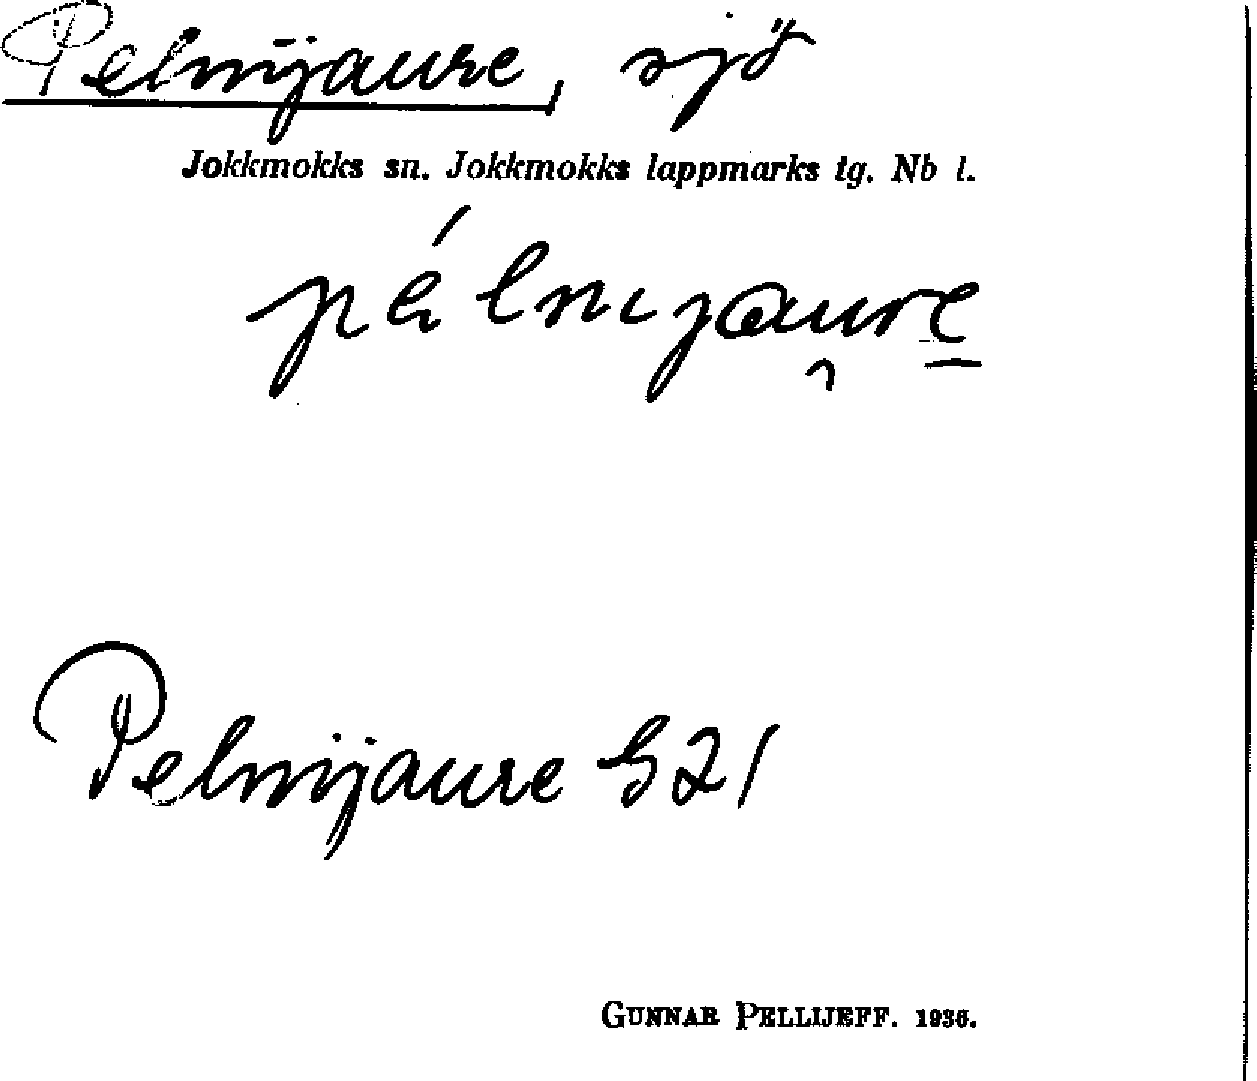 Pelnijaure, sjö
Jokkmokks sn. Jokkmokks lappmarks tg. Nb l.
Pelnijaure S21
GUNNAR PELLIJEFF. 1936.